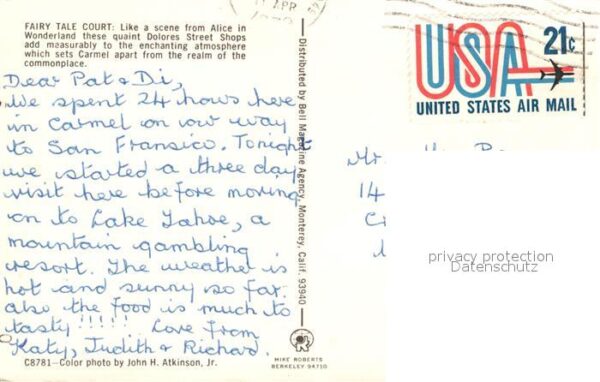 FAIRY TALE COURT: Like a scene from Alice in
Wonderland these quaint Dolores Street Shops
add measurably to the enchanting atmosphere
which sets Carmel apart from the realm of the
commonplace.
Dear Pat & Di,
We spent 24 hours here
in Carmel on our way
to San Fransico. Tonight
we started a three day
visit here before moving
on to Lake Tahoe, a
mountain gambling
resort. The weather is
hot and sunny so far.
also the food is much to
tasty!!!!! Love from
Katy, Judith & Richard.
C8781—Color photo by John H. Atkinson, Jr.
Distributed by Bell Magazine Agency, Monterey, Calif. 93940
MIKE ROBERTS
BERKELEY 94710
APR
USA 21c
UNITED STATES AIR MAIL
Mr
14
privacy protection
Datenschutz